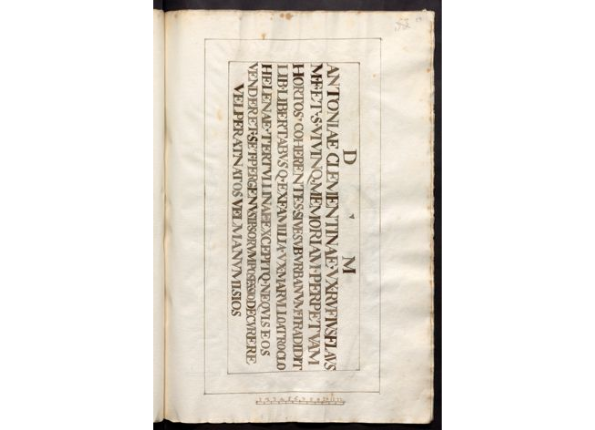 D M
ANTONIAE CLEMENTINAE·VXRVFIVSFLAVS
M·F·ET·S·VIVINQ·MEMORIAM·PERPETVAM
HORTOS·COHERENTES·SIVESVBVRBANVM·TRADIDIT
LIB·LIBERTABVS·Q·EXFAMILIA·VX·MARVLLO
HELENAE·TERTVLLINAE·EXCEPITQ·NEQVIS EOS
VENDERET·SET·PERGENVS